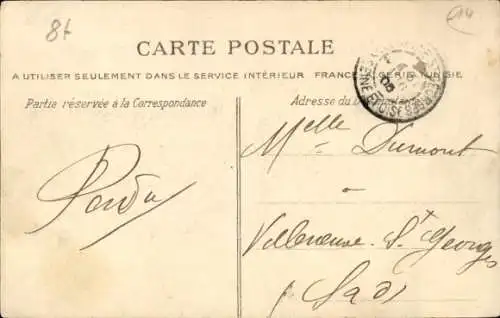 8f
14
CARTE POSTALE
A UTILISER SEULEMENT DANS LE SERVICE INTÉRIEUR FRANCE, ALGÉRIE, TUNISIE
Partie réservée à la Correspondance
Adresse du
SEINE ET OISE
Melle Dumont
à
Villeneuve-St Georges